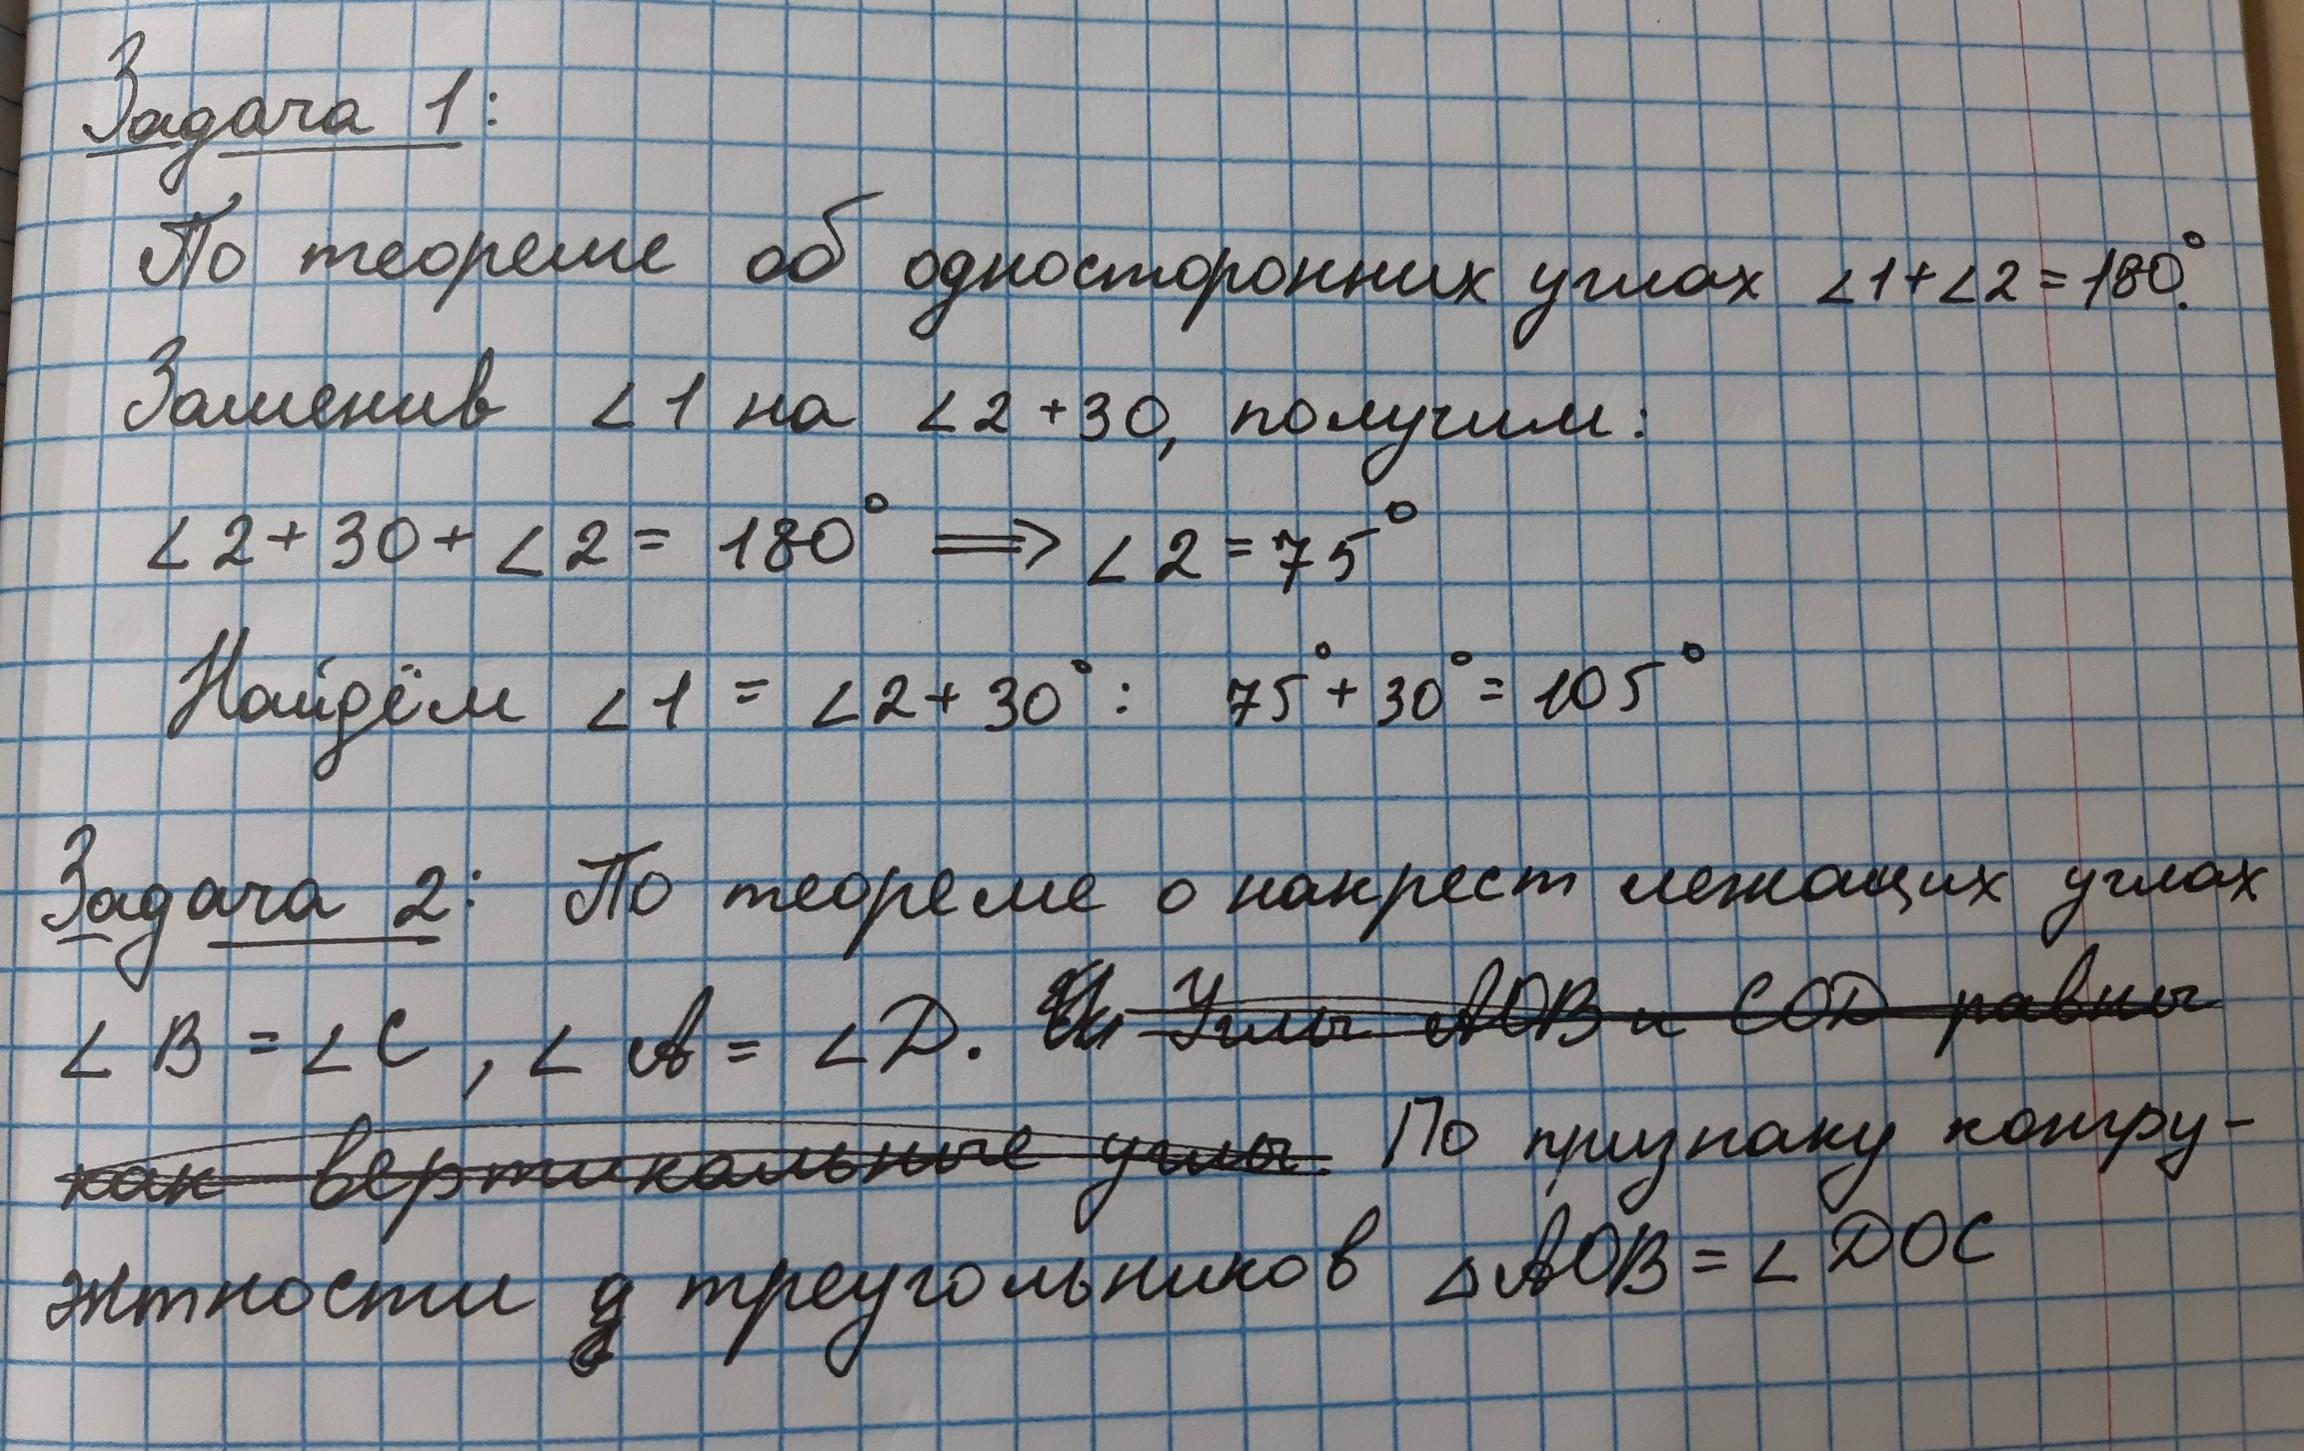 Задача 1:
По теореме об односторонних углах ∠1+∠2=180°.
Заменив ∠1 на ∠2+30, получим:
∠2+30+∠2=180° ⟹ ∠2=75°
Найдём ∠1=∠2+30°: 75°+30°=105°
Задача 2: По теореме о накрест лежащих углах
∠B=∠C, ∠A=∠D. Углы AOB и COD равны
как вертикальные углы. По признаку конгру-
эктности треугольников △AOB=∠DOC